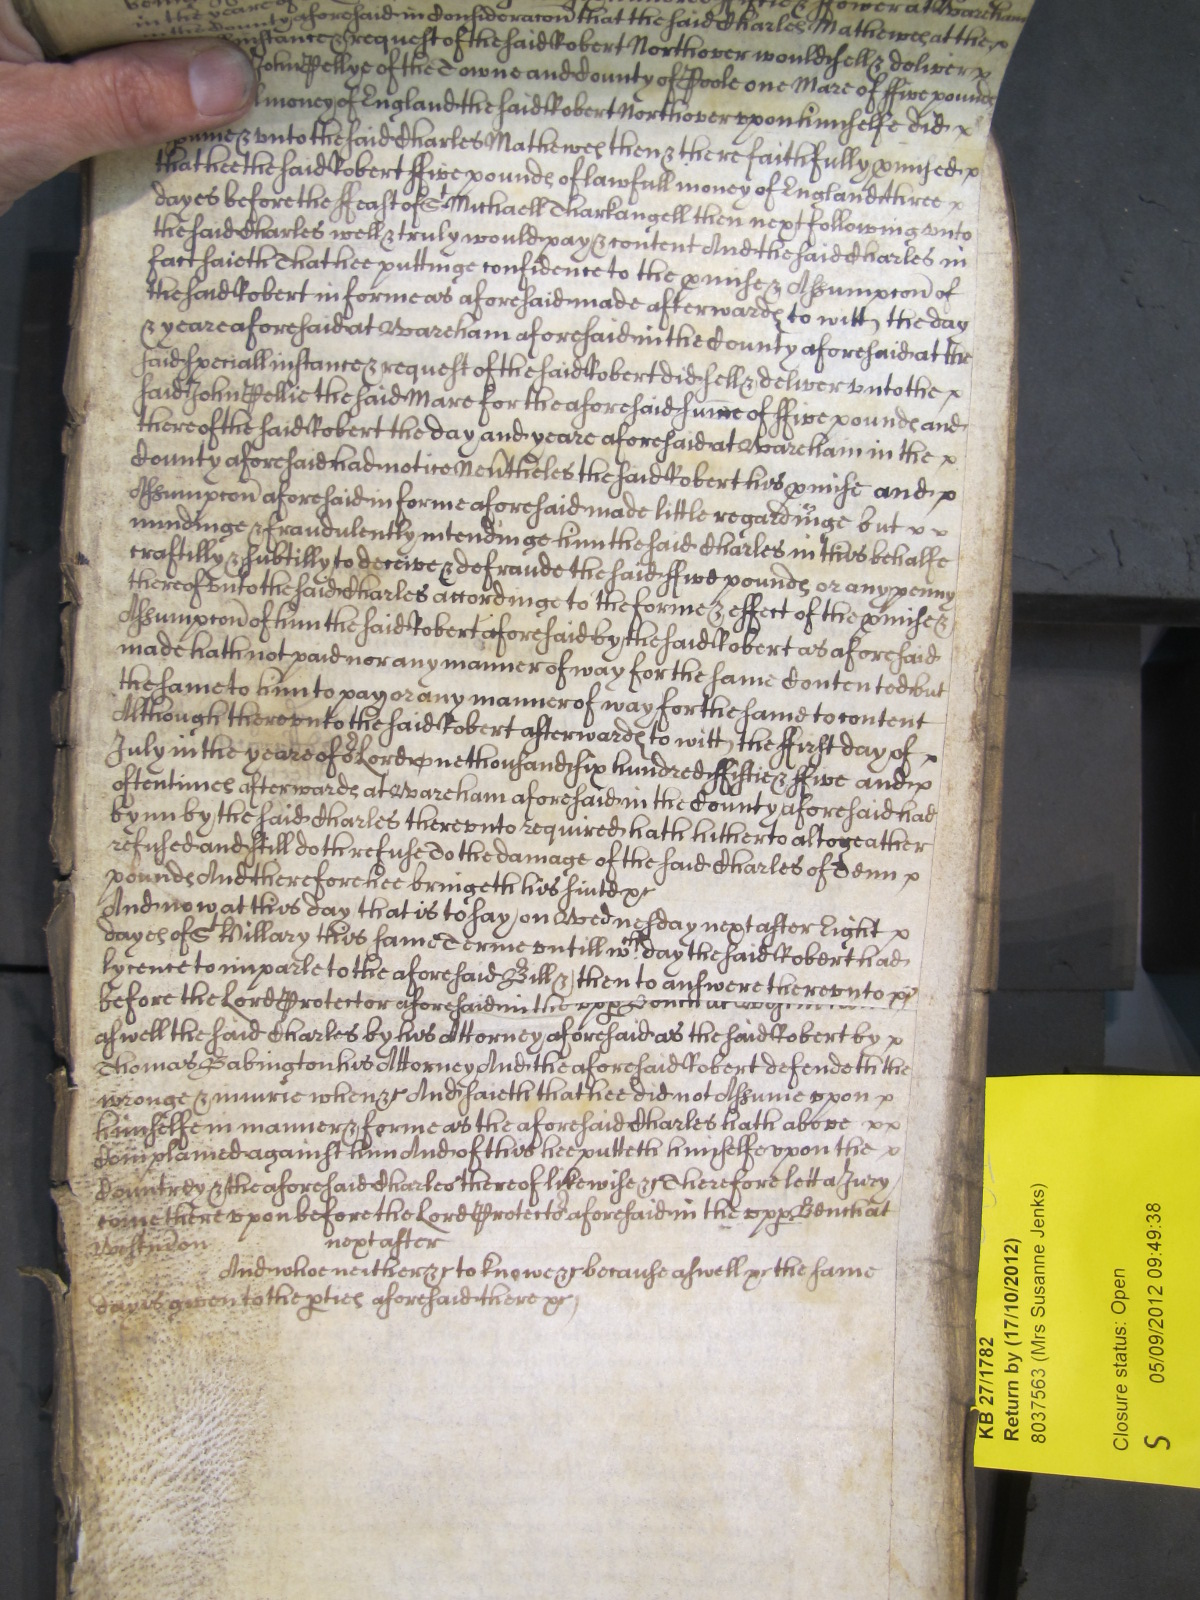 in the yeare of
in the County aforesaid in Consideracon that the said Charles Mathewes at the x
instance & request of the said Robert Northover would sell & deliver x
John Pellye of the Towne and County of Poole one Mare of ffive pounds
money of England the said Robert Northover vpon himselfe did x
Assume & vnto the said Charles Mathewes then & there faithfully pmised x
that hee the said Robert ffive pounds of lawfull money of England three x
dayes before the ffeast of St Michaell Tharkangell then next following vnto
the said Charles well & truly would pay & content And the said Charles in
fact saieth That hee puttinge confidence to the pmise & Assumpcon of
the said Robert in forme as aforesaid made afterwards to witt the day
& yeare aforesaid at Wareham aforesaid in the County aforesaid at the
said speciall instance & request of the said Robert did sell & deliver vnto the x
said John Pellie the said Mare for the aforesaid sume of ffive pounds and
thereof the said Robert the day and yeare aforesaid at Wareham in the x
County aforesaid had notice Neutheles the said Robert his pmise and x
Assumpcon aforesaid in forme aforesaid made little regardinge but x x
mindinge & fraudulently intendinge him the said Charles in this behalfe
craftilly & subtilly to deceive & defraude the said ffive pounds or any penny
thereof vnto the said Charles accordinge to the forme & effect of the pmise &
Assumpcon of him the said Robert aforesaid by the said Robert as aforesaid
made hath not paid nor any manner of way for the same Contented but
the same to him to pay or any manner of way for the same to content
Although therevnto the said Robert afterwards to witt the ffirst day of x
July in the yeare of or Lord one thousand six hundred ffiftie & ffive and x
oftentimes afterwards at Wareham aforesaid in the County aforesaid had
bynn by the said Charles therevnto required hath hitherto altogeather
refused and still doth refuse To the damage of the said Charles of Tenn x
pounds And therefore hee bringeth his suite &c
And now at this day that is to say on Wednesday next after Eight x
dayes of St Hillary this same Terme vntill wch day the said Robert had
lycence to imparle to the aforesaid Bill & then to answere therevnto &c
before the Lord Protector aforesaid in the vpp Bench at
aswell the said Charles by his Attorney aforesaid as the said Robert by x
Thomas Babington his Attorney And the aforesaid Robert defendeth the
wronge & iniurie when &c And saieth that hee did not Assume vpon x
himselfe in manner & forme as the aforesaid Charles hath above x x
Complained against him And of this hee putteth himselfe vpon the x
Countrey & the aforesaid Charles thereof likewise &c Therefore lett a Jury
come there vpon before the Lord Protector aforesaid in the vpp Bench at
Westm on next after
And whoe neither &c to knowe &c because aswell &c the same
day is given to the pties aforesaid there &c
KB 27/1782
Return by (17/10/2012)
8037563 (Mrs Susanne Jenks)
Closure status: Open
S 05/09/2012 09:49:38